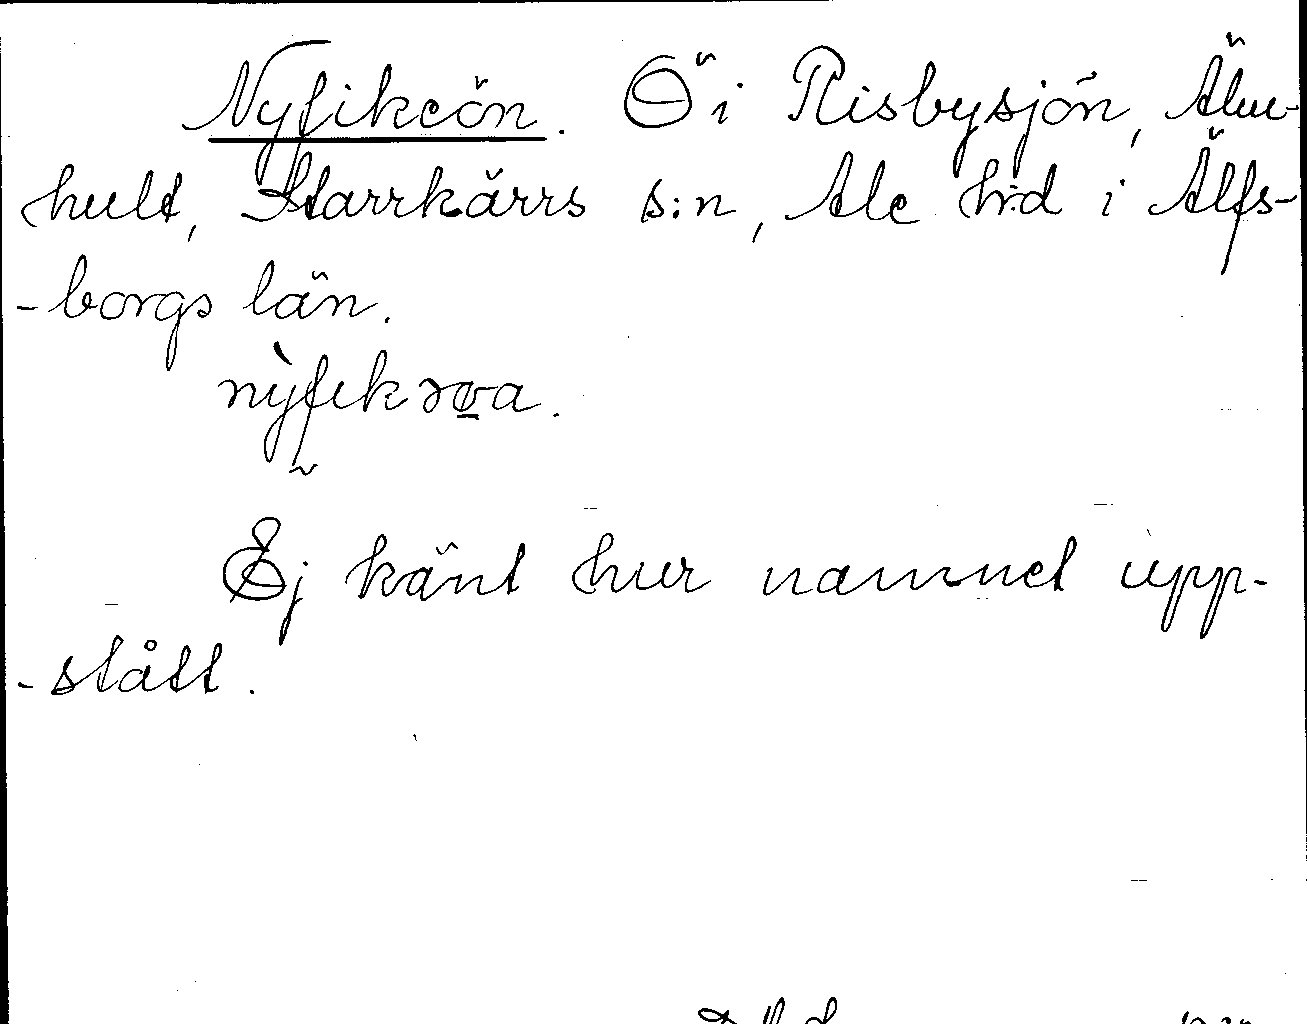 Nyfikeön. Ö i Risbysjön, Älve-
hult, Starrkärrs s:n, Ale h:d i Älfs-
-borgs län.
nỳfikəɷ̲a.
Ej känt hur namnet upp-
-stått.